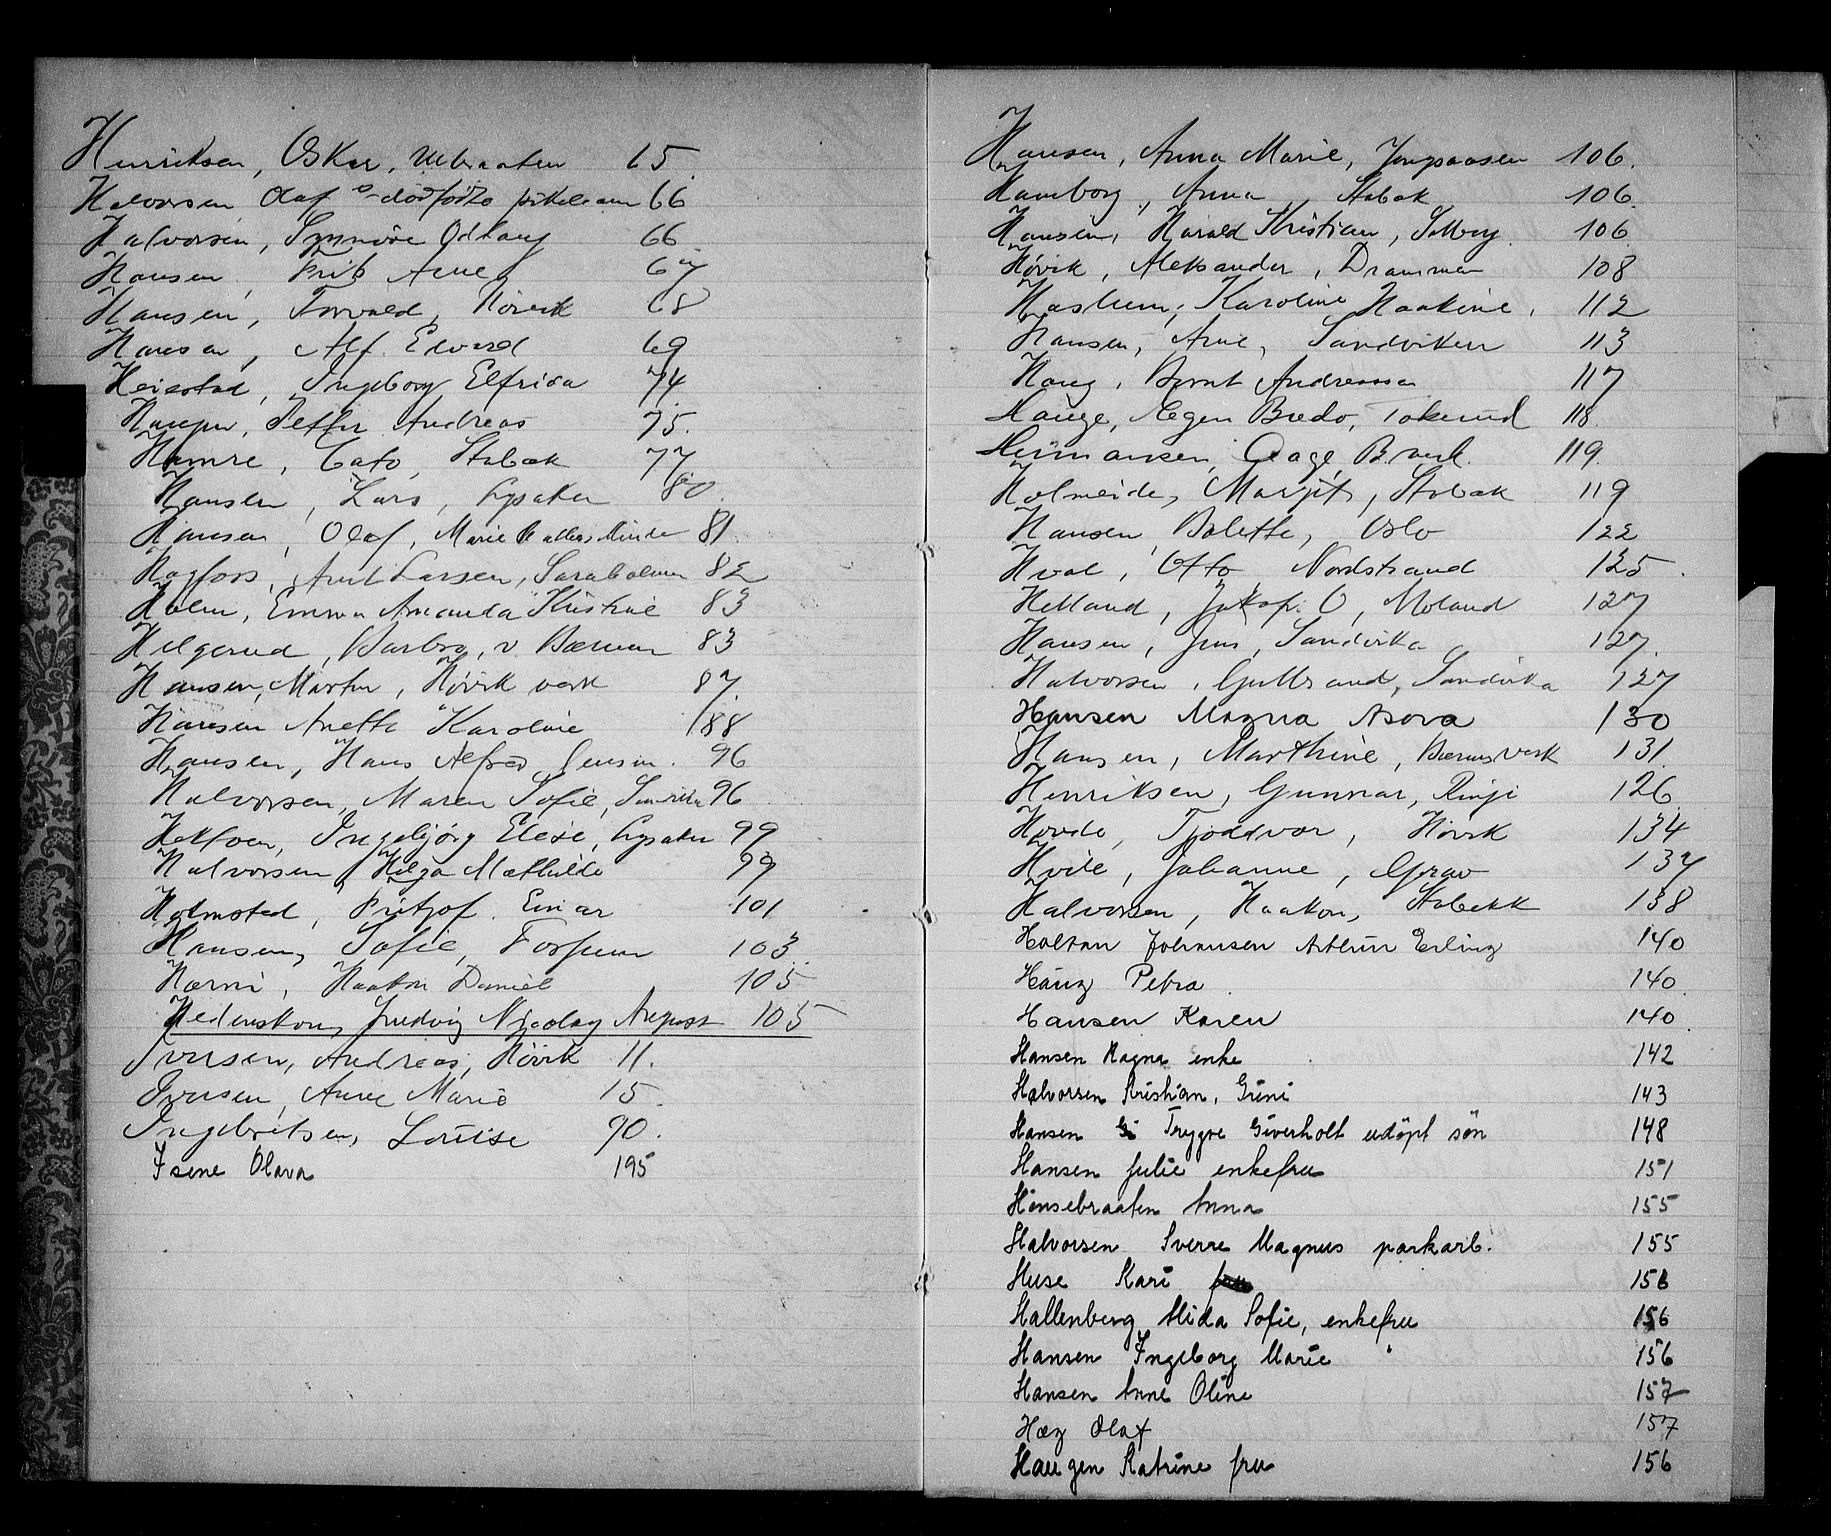 Henriksen, Oskar, Ulbraaten 65.
Halvorsen Olaf's dødfødte pikebarn 66
Halvorsen, Synnöve Odlaug 66
Hansen, Frits Arne 67
Hansen, Torvald, Hövik 68
Hansen, Alf Edvard 69
Heiestad, Ingeborg Elfrida 74.
Haugen, Petter Andreas 75.
Hamre, Cato, Stabæk 77
Hansen, Lars, Lysaker 80.
Hansen, Olaf, Marie Minde 81.
Hagfors, Arnt Larsen, 82
Holm, Emma Amanda Kristine 83
Helgerud, Barbro, v Bærum 83
Hansen, Martin, Hövik verk 87.
Hansen Anette Karoline 88
Hansen, Hans Alfred Jensen. 96
Halvorsen, Maren Sofie, Sandvika 96
Ingebjörg Elise, Lysaker 99
Halvorsen, Helga Mathilde 99
Holmsted, Fritjof Einar 101
Hansen, Sofie, Fossum 103.
Hærni, Haakon Daniel 105
Ludvig Nicolay August 105
Iversen, Andreas, Hövik 11.
Iversen, Anne Marie 15.
Ingebretsen, Louise 90.
Isene Olava 195
Hansen, Anna Marie, Jongsaasen 106.
Hamborg, Anna, Stabæk 106.
Hansen, Harald Kristian, Solberg. 106
Hövik, Aleksander, Drammen 108
Haslum, Karoline Haakine, 112
Hansen, Arne, Sandviken 113
Haug, Bernt Andreassen 117
Hauge, Aegen Bredo, Tokerud 118.
Heimansen, Aage, B. verk. 119.
Holmeide, Margit, Stabæk 119
Hansen, Bolette, Oslo 122
Hval, Otto Nordstrand 125.
Helland, Jakop O, Moland 127
Hansen, Jens, Sandvika 127.
Halvorsen, Gulbrand, Sandvika 127
Hansen Magna Asora 130
Hansen, Marthine, Bærums Verk 131.
Henriksen, Gunnar, Ringi 126
Hovde, Tjoddvor, Hövik 134
Hvile, Johanne, Grav 137
Halvorsen, Haakon, Stabekk 138
Holtan Johansen Arthur Erling 140
Haug Petra 140.
Hansen Karen 140.
Hansen Ragna enke 142
Halvorsen Kristian, Grini 143
Hansen Trygve Giverholt udöpt sön 148
Hansen Julie enkefru 151
Hönsebraaten Anna 155
Halvorsen Sverre Magnus parkarb. 155
Huse Kari 156
Hallenberg Alida Sofie, enkefru 156
Hansen Ingeborg Marie " 156
Hansen Anne Oline 157
Hæg Olaf 157
Haugen Katrine fru 156